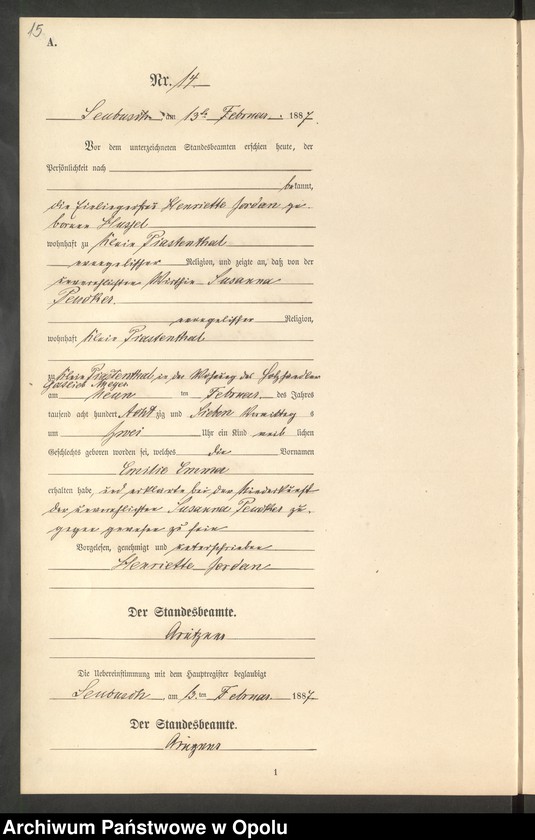 15.
A.
Nr. 14
Leubusch am 13ten Februar 1887.
Vor dem unterzeichneten Standesbeamten erschien heute, der
Persönlichkeit nach
bekannt,
die Einliegerfrau Henriette Jordan ge-
borene
wohnhaft zu Klein Piastenthal
evangelischer Religion, und zeigte an, daß von der
unverehelichten Susanna
evangelischer Religion,
wohnhaft Klein Piastenthal
zu Klein Piastenthal in der Wohnung des Holzhändler
Gottlieb
am neun ten Februar des Jahres
tausend acht hundert Acht zig und Sieben Vormittag s
um zwei Uhr ein Kind weib lichen
Geschlechts geboren worden sei, welches die Vornamen
Emilie Emma
erhalten habe, und erklärte bei der Niederkunft
der unverehelichten Susanna zu-
gegen gewesen zu sein
Vorgelesen, genehmigt und unterschrieben
Henriette Jordan
Der Standesbeamte.
Die Uebereinstimmung mit dem Hauptregister beglaubigt
Leubusch, am 13. ten Februar 1887.
Der Standesbeamte.
1
Archiwum Państwowe w Opolu